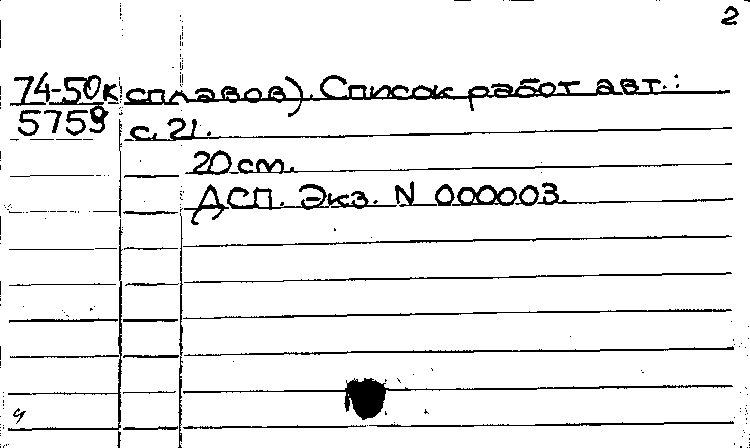 2
74-50к сплавов). Список работ авт.:
5759 с. 21.
20 см.
ДСП. Экз. N 000003.